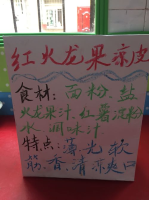 红火龙果凉皮
食材:面粉,盐
火龙果汁,红薯淀粉
水,调味汁
特点:薄,光,软
筋,香,清凉爽口